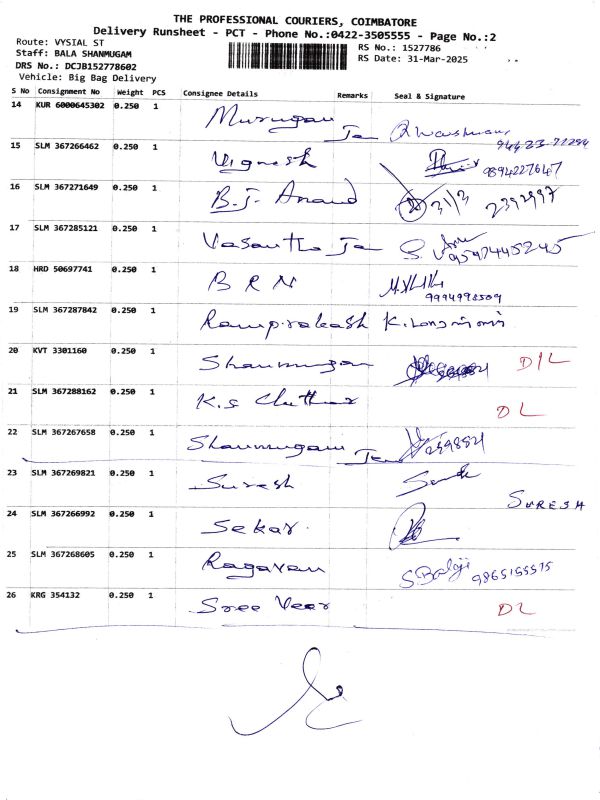 THE PROFESSIONAL COURIERS, COIMBATORE
Delivery Runsheet - PCT - Phone No.:0422-3505555 - Page No.:2
Route: VYSIAL ST
RS No.: 1527786
Staff: BALA SHANMUGAM
RS Date: 31-Mar-2025
DRS No.: DCJB152778602
Vehicle: Big Bag Delivery
S No Consignment No Weight PCS Consignee Details Remarks Seal & Signature
14 KUR 6000645302 0.250 1 Murugan
15 SLM 367266462 0.250 1 Vignesh 9894227647
16 SLM 367271649 0.250 1 B.J. Anand 31/3 2392997
17 SLM 367285121 0.250 1 Vasantha Je
18 HRD 50697741 0.250 1 B R N 9994998509
19 SLM 367287842 0.250 1 Ramprakash
20 KVT 3301160 0.250 1 Shanmugam D/L
21 SLM 367288162 0.250 1 K.S DL
22 SLM 367267658 0.250 1 Shanmugam Je 2398821
23 SLM 367269821 0.250 1 Suresh
SURESH
24 SLM 366266992 0.250 1 Sekar.
25 SLM 367268605 0.250 1 Ragavan S.Balaji 9865155515
26 KRG 354132 0.250 1 Sree Veer DL